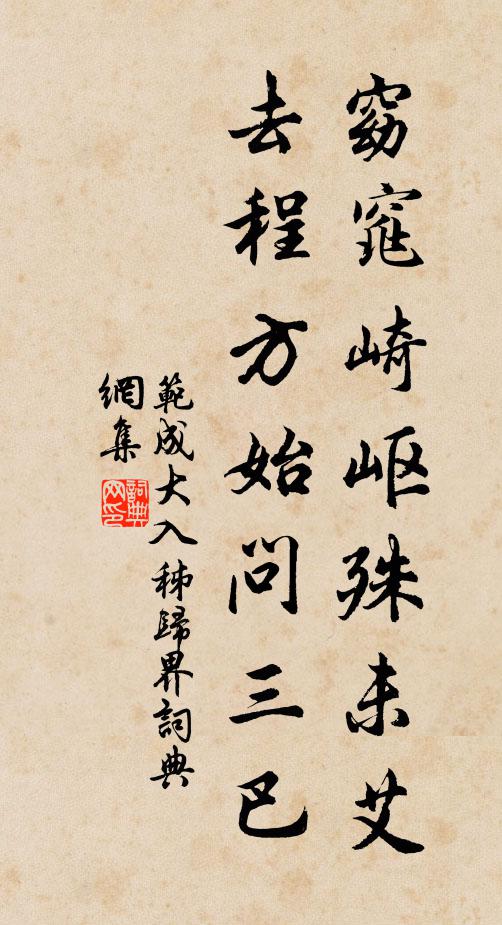 窈窕崎岖殊未艾
去程方始问三巴
範成大入秭歸界詞典
網集
詞典
网印